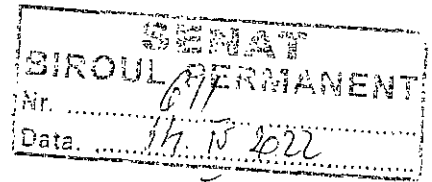 SENAT
BIROUL PERMANENT
Nr. ..........
Data. ..... 2022